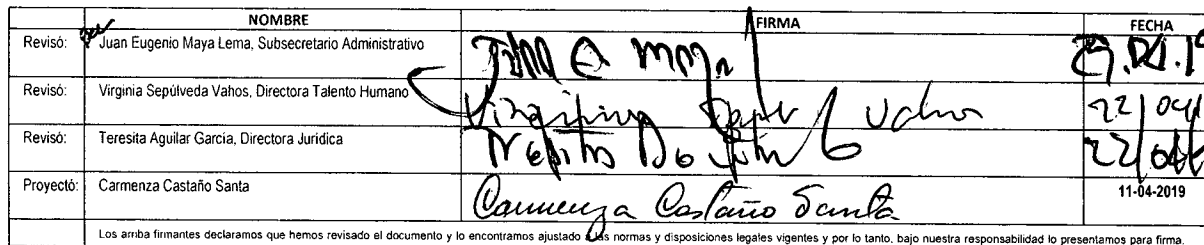 NOMBRE FIRMA FECHA
Revisó: Juan Eugenio Maya Lema, Subsecretario Administrativo
Revisó: Virginia Sepúlveda Vahos, Directora Talento Humano 22/04/
Revisó: Teresita Aguilar García, Directora Jurídica
Proyectó: Carmenza Castaño Santa Carmenza Castaño Santa 11-04-2019
Los arriba firmantes declaramos que hemos revisado el documento y lo encontramos ajustado a las normas y disposiciones legales vigentes y por lo tanto, bajo nuestra responsabilidad lo presentamos para firma.